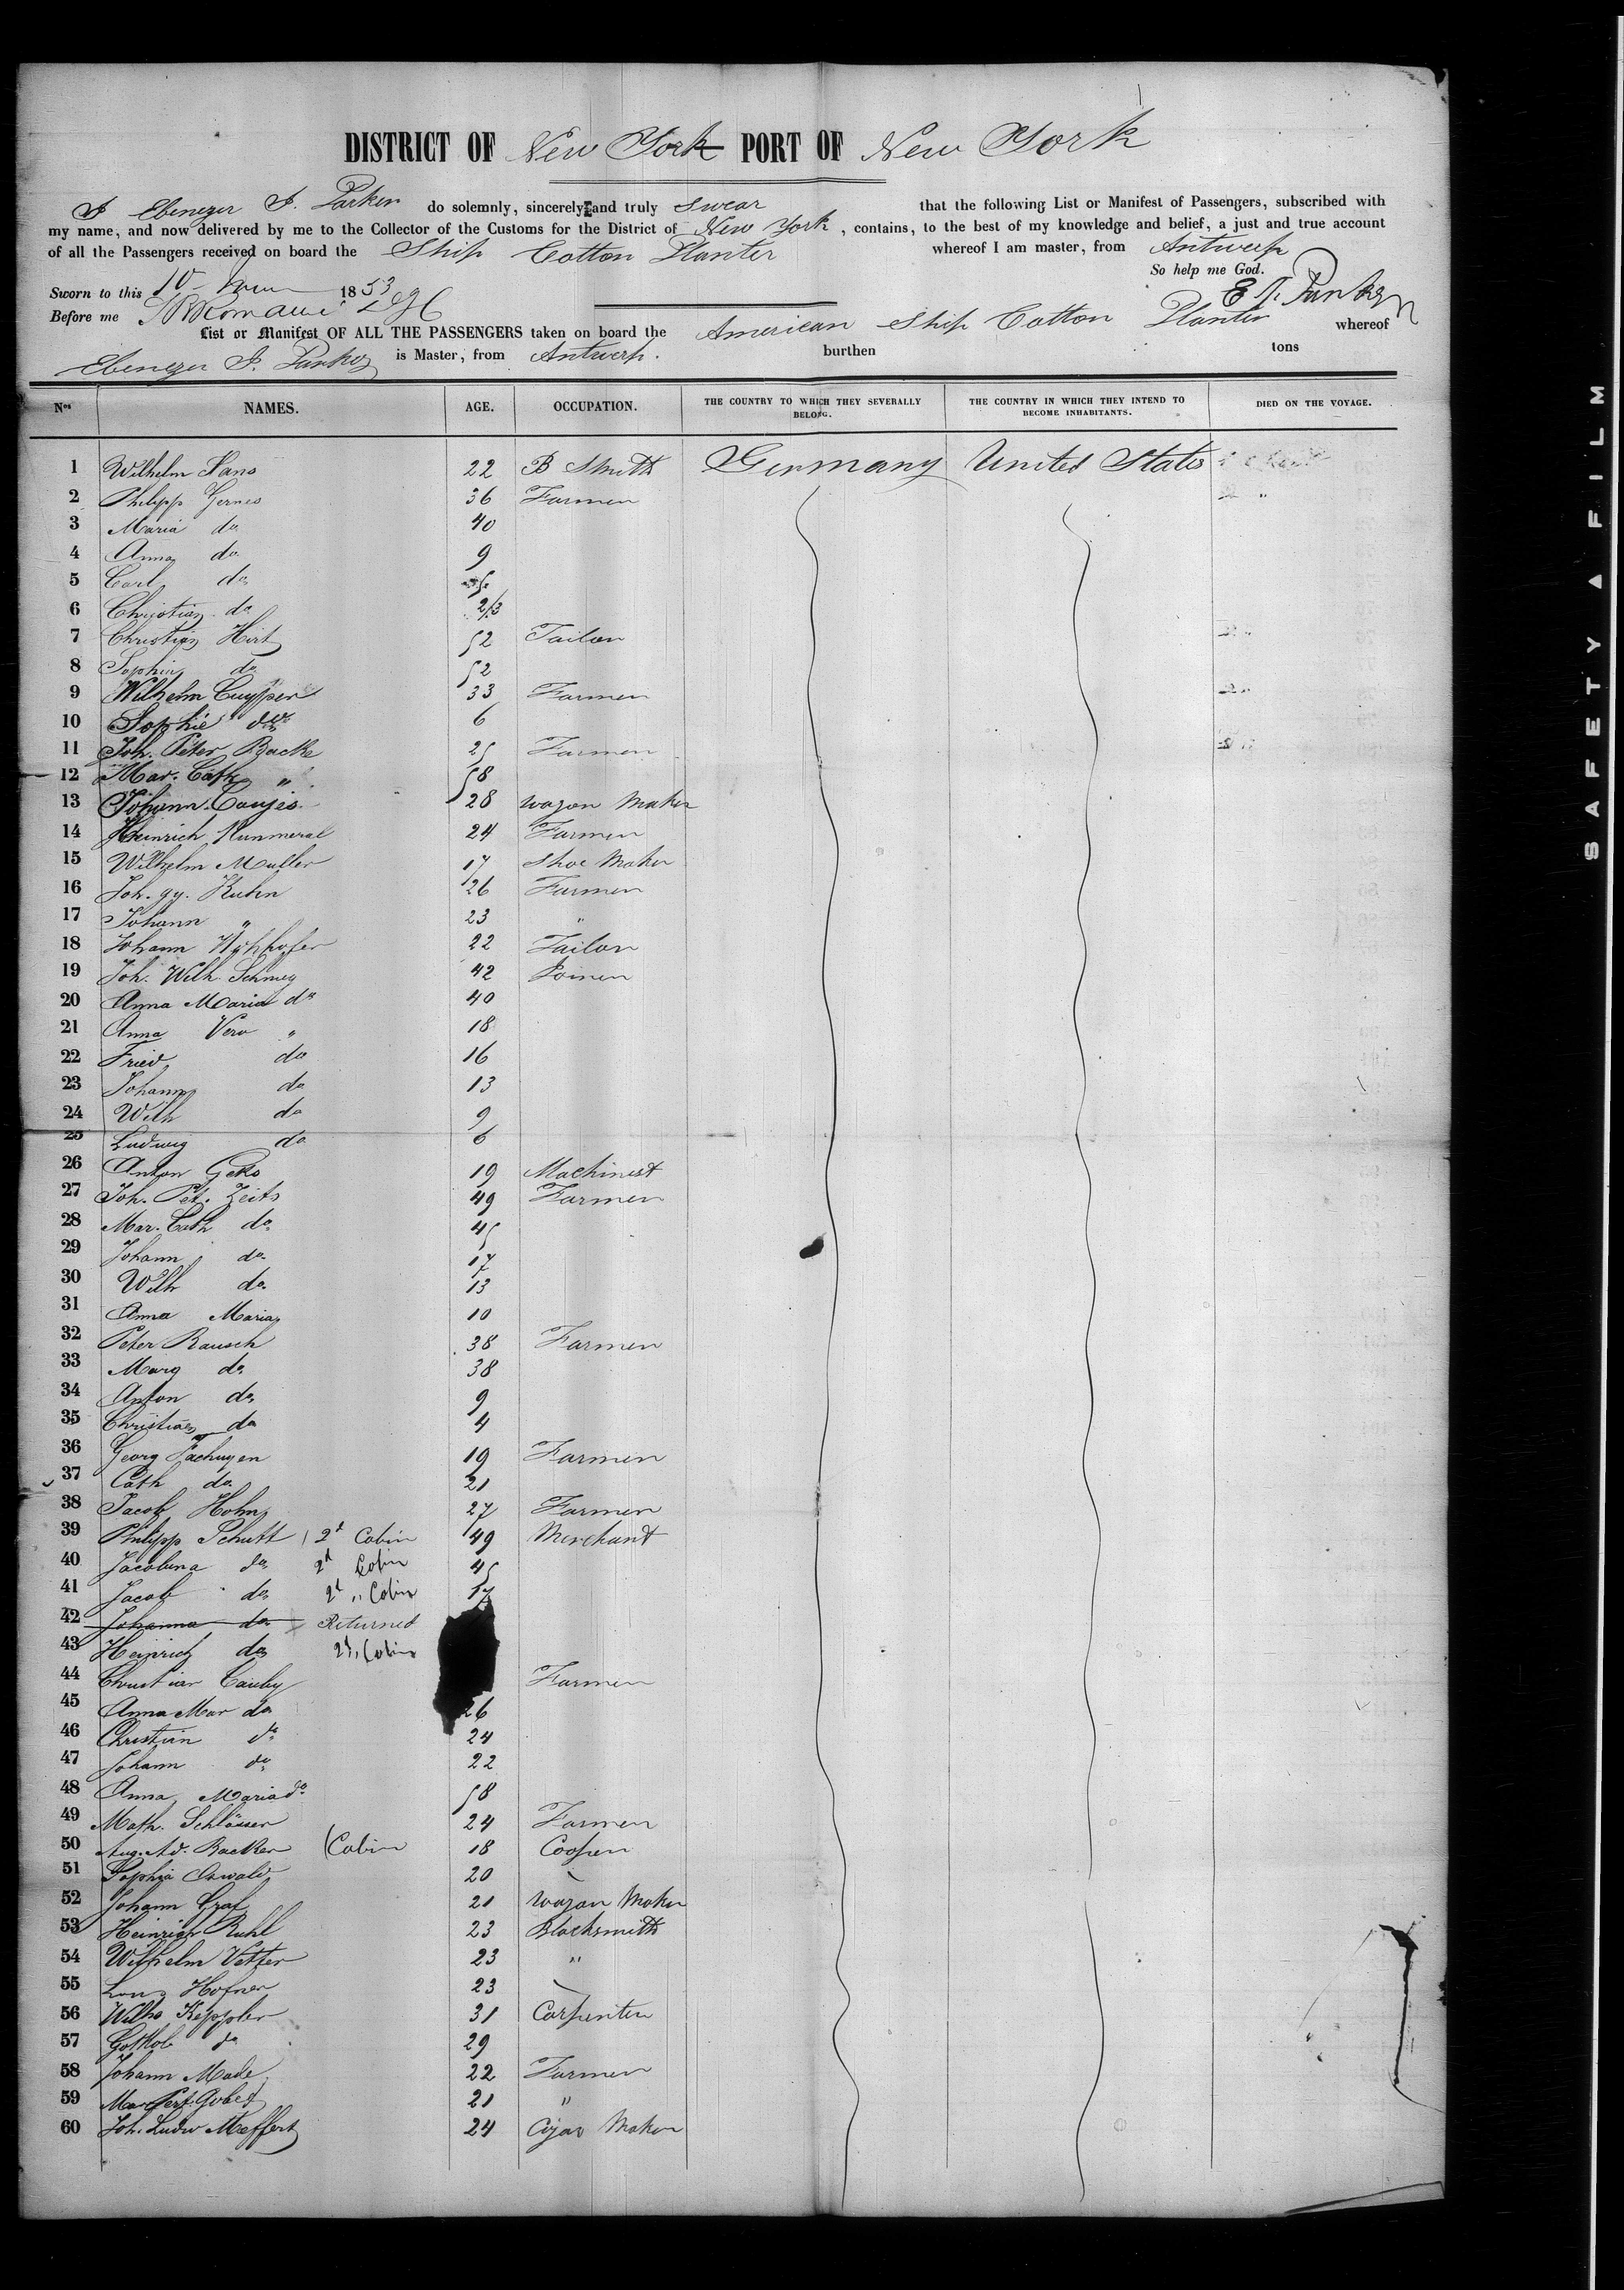 DISTRICT OF New York PORT OF New York
I Ebenezer J. Parker do solemnly, sincerely and truly swear that the following List or Manifest of Passengers, subscribed with
my name, and now delivered by me to the Collector of the Customs for the District of New York, contains, to the best of my knowledge and belief, a just and true account
of all the Passengers received on board the Ship Cotton Planter whereof I am master, from Antwerp
So help me God.
Sworn to this 10 1853 E J. Parker
Before me
List or Manifest OF ALL THE PASSENGERS taken on board the American Ship Cotton Planter whereof
Ebenezer J. Parker is Master, from Antwerp. burthen tons
Nos NAMES. AGE. OCCUPATION. THE COUNTRY TO WHICH THEY SEVERALLY BELONG. THE COUNTRY IN WHICH THEY INTEND TO BECOME INHABITANTS. DIED ON THE VOYAGE.
1 Wilhelm 22 B Smith Germany United States
2 Philipp Gernes 36 Farmer
3 Maria do 40
4 Anna do 9
5 Carl do
6 Christian do 2/3
7 Christian Hirt 52 Tailor
8 Sophia do 52
9 Wilhelm Cuypper 33 Farmer
10 Sophie do 6
11 Joh. Peter Backe 25 Farmer
12 Mar. Cath " 58
13 Johann 28 Wagon Maker
14 Heinrich 24 Farmer
15 Wilhelm Muller 17 Shoe Maker
16 Joh. gg. Kuhn 26 Farmer
17 Johann " 23 "
18 Johann 22 Tailor
19 Joh. Wilh. 42 Joiner
20 Anna Maria do 40
21 Anna Vero " 18
22 Fried do 16
23 Johann do 13
24 Wilh do 9
25 Ludwig do 6
26 Anton 19 Machinist
27 Joh. Pet. Zeits 49 Farmer
28 Mar. Cath do 45
29 Johann do 17
30 Wilh do 13
31 Anna Maria 10
32 Peter Rausch 38 Farmer
33 Marg do 38
34 Anton do 9
35 Christian do 4
36 Georg 19 Farmer
37 Cath do 21
38 Jacob Hohn 27 Farmer
39 Philipp Schutt 2d Cabin 49 Merchant
40 Jacobina do 2d Cabin 45
41 Jacob do 2d " Cabin 17
42 Johanna do Returned
43 Heinrich do 2d Cabin
44 Christian Cauby Farmer
45 Anna Mar do 26
46 Christian do 24
47 Johann do 22
48 Anna Maria do 58
49 Math. Schlösser 24 Farmer
50 Aug. Ad. Backer (Cabin 18 Cooper
51 Sophia Oswald 20
52 Johann Graf 21 Wagon Maker
53 Heinrich Ruhl 23 Blacksmith
54 Wilhelm Vetter 23 "
55 Hofner 23
56 Wilh Keppler 31 Carpenter
57 Gottlob do 29
58 Johann Made 22 Farmer
59 21 "
60 Joh. Ludw Meffert 24 Cigar Maker
SAFETY FILM